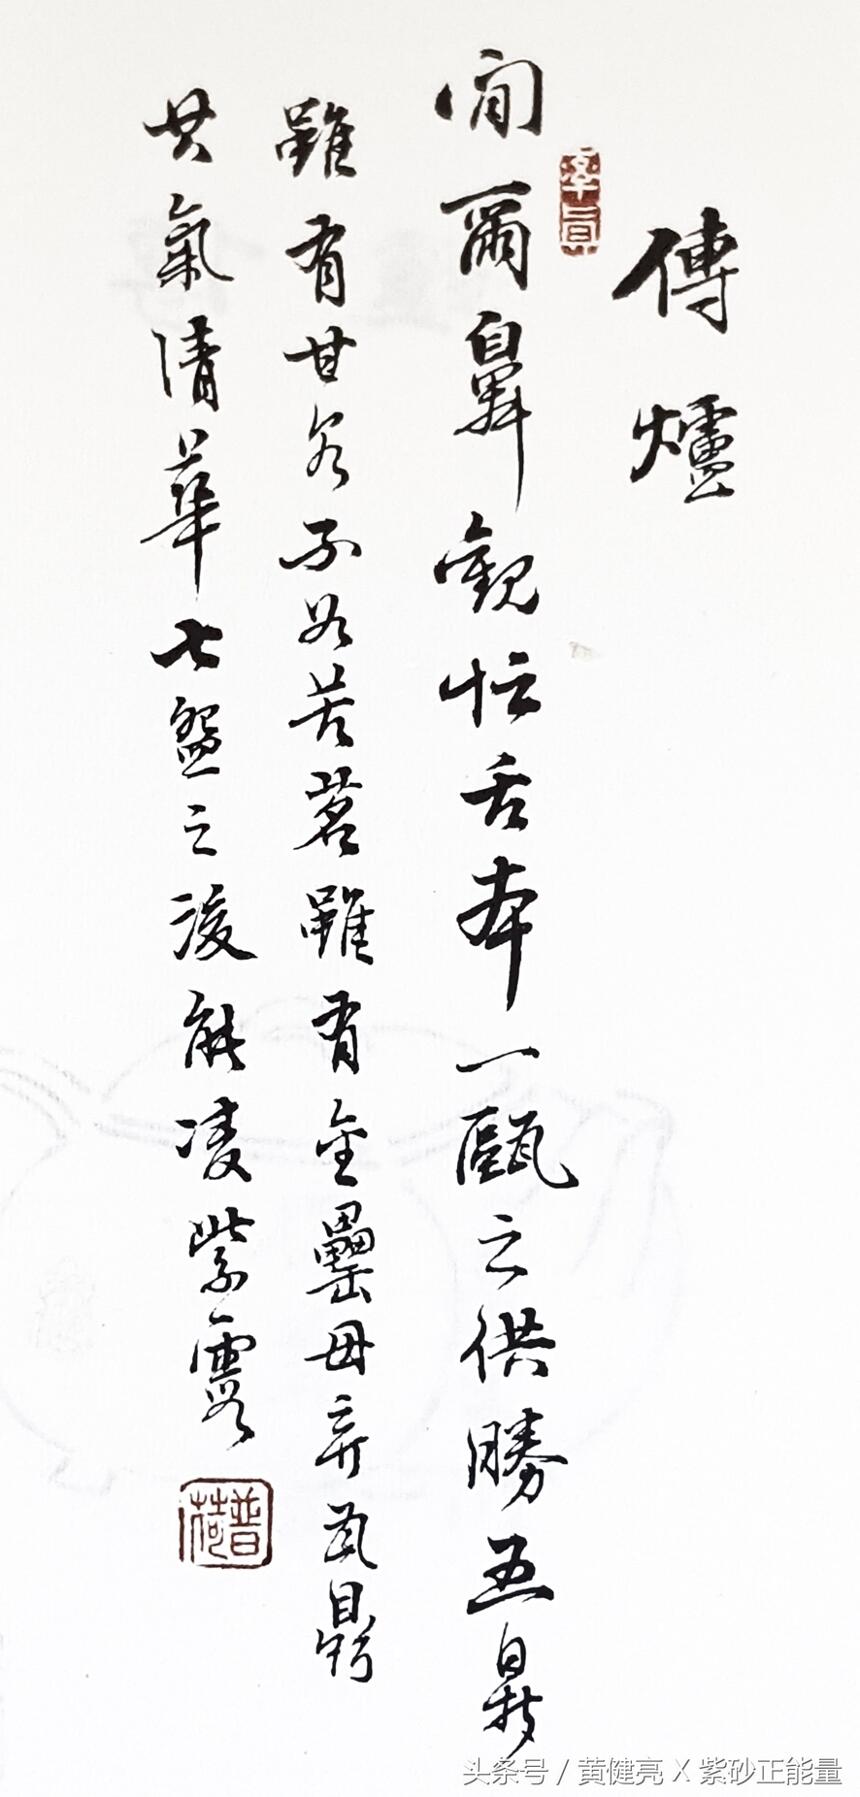 傳爐
爾鼻觀舌本一甌之供勝五鼎
雖有甘不如苦茗雖有金罍毋弃瓦鼎
其氣清華七盌之後能凌紫霞
普荷
头条号 / 黄健亮 X 紫砂正能量